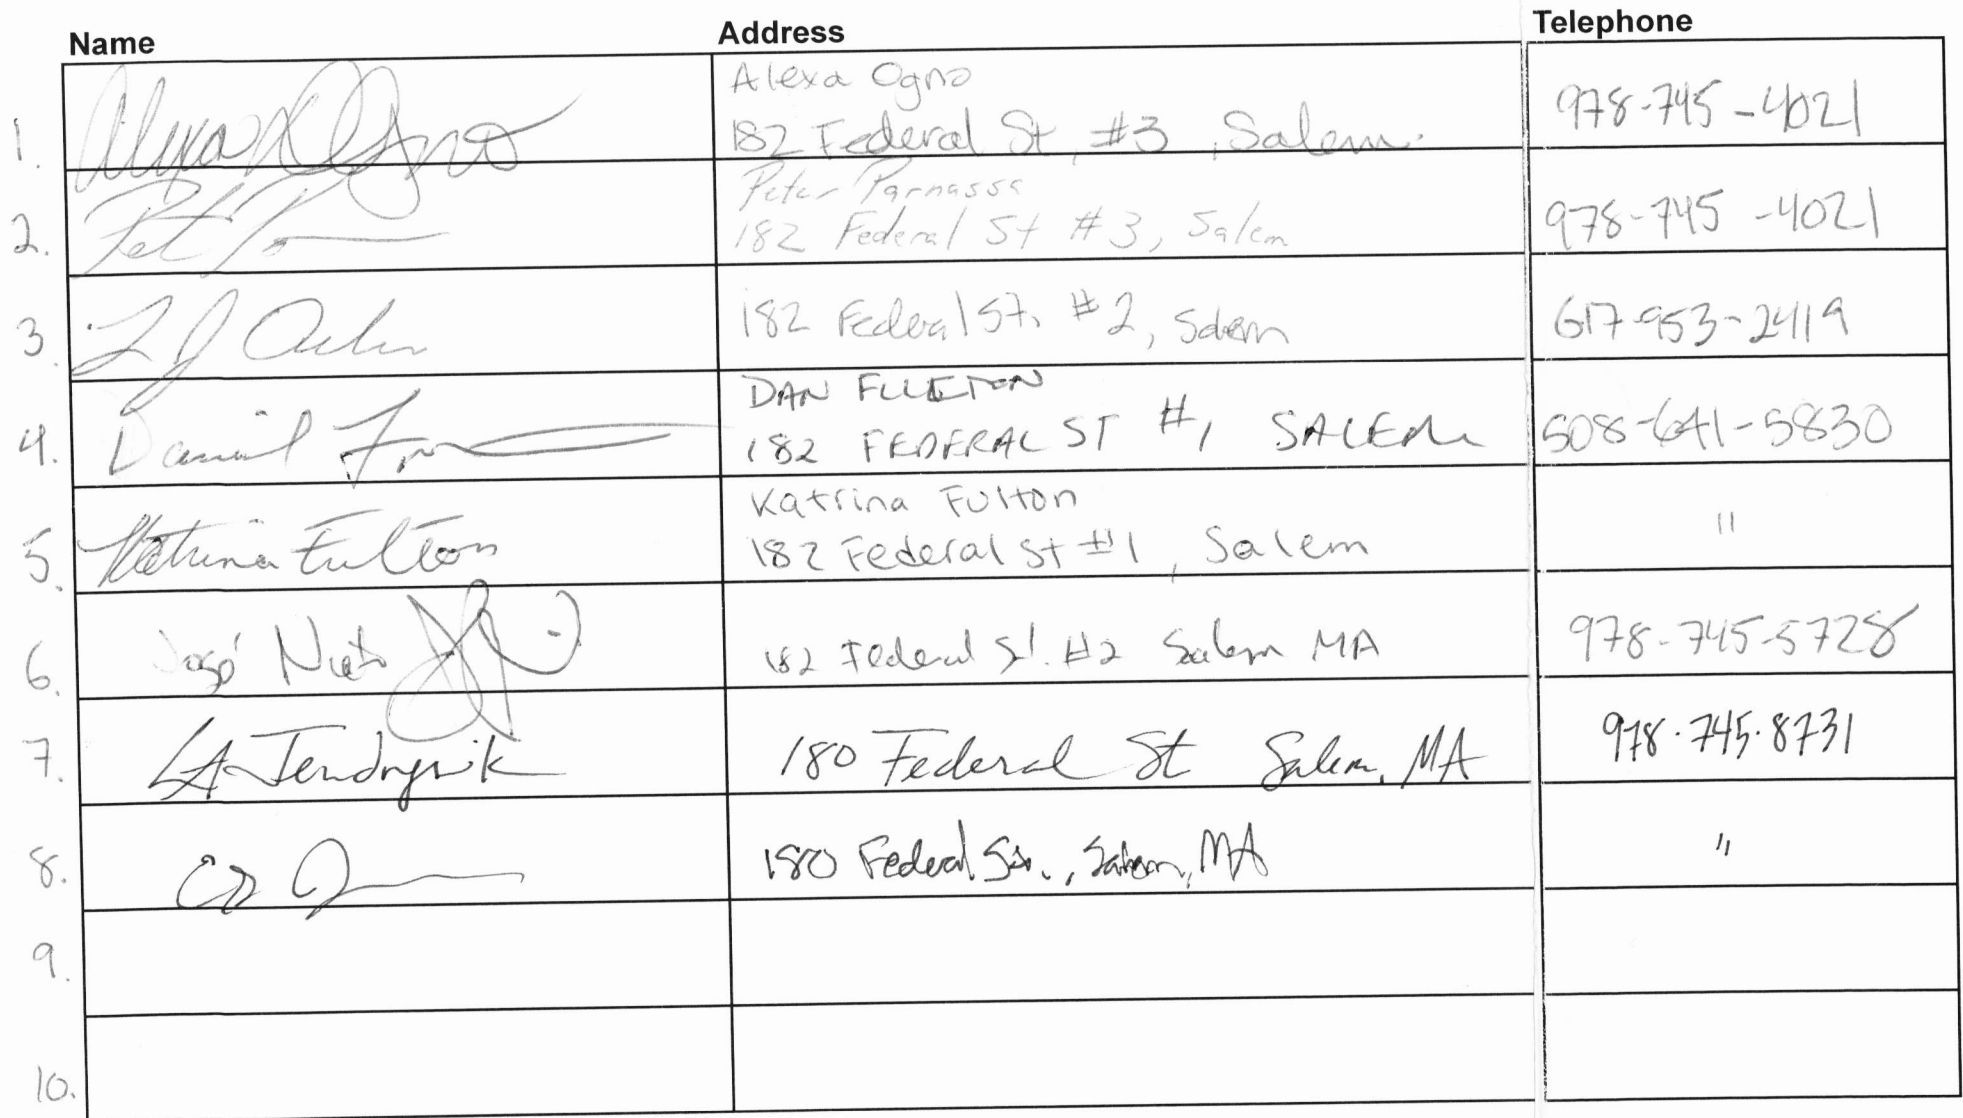 Name Address Telephone
1. Alexa Ogno
182 Federal St, #3, Salem 978-745-4021
2. Peter
182 Federal St #3, Salem 978-745-4021
3. 182 Federal St. #2, Salem 617-953-2419
4. Daniel DAN
182 FEDERAL ST #1 SALEM 508-641-5830
5. Katrina Fulton Katrina Fulton
182 Federal St #1, Salem "
6. José Nieto 182 Federal St. #2 Salem MA 978-745-5728
7. 180 Federal St Salem, MA 978.745.8731
8. 180 Federal St., Salem, MA "
9.
10.